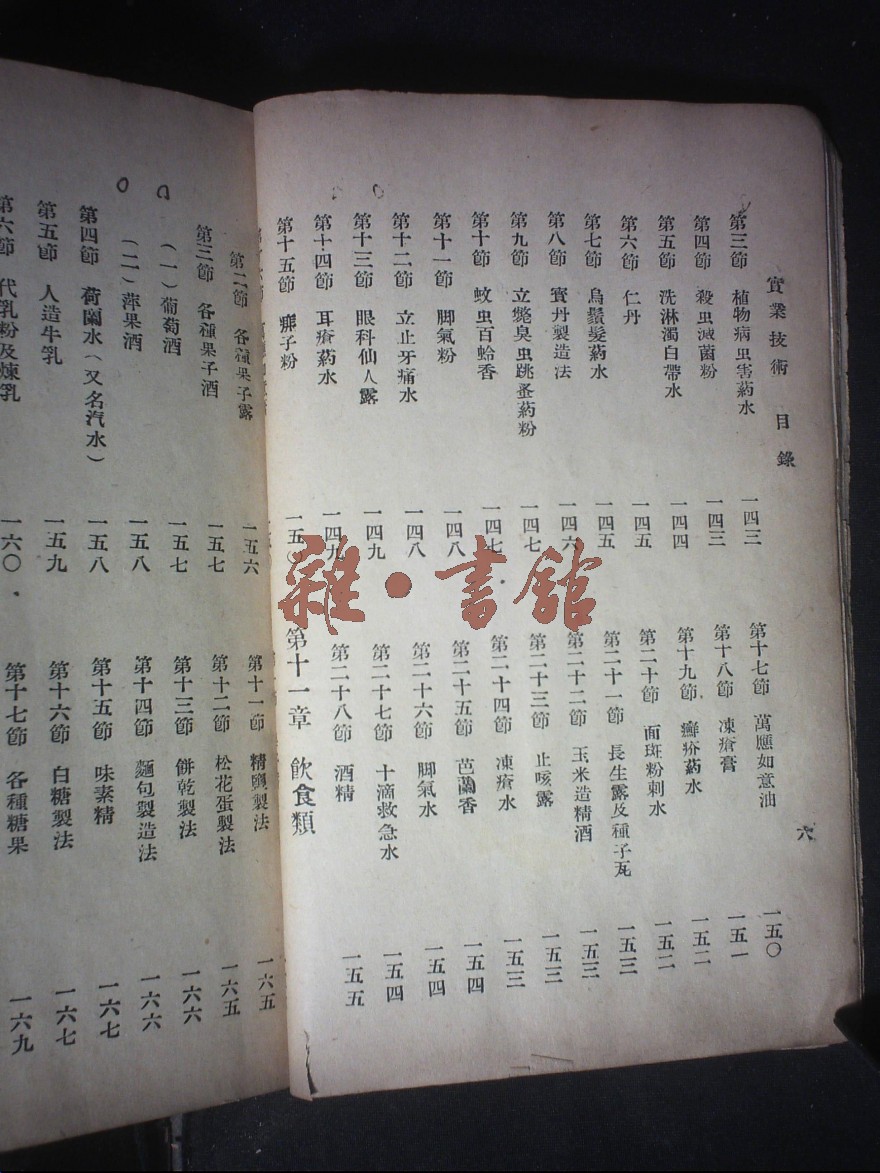 實業技術 目錄
六
第三節 植物病虫害葯水 一四三
第四節 殺虫滅菌粉 一四三
第五節 洗淋濁白帶水 一四四
第六節 仁丹 一四五
第七節 烏鬚髮葯水 一四五
第八節 寶丹製造法 一四六
第九節 立斃臭虫跳蚤葯粉 一四七
第十節 蚊虫百蛉香 一四七
第十一節 脚氣粉 一四八
第十二節 立止牙痛水 一四八
第十三節 眼科仙人露 一四九
第十四節 耳瘡葯水 一四九
第十五節 痱子粉 一五〇
第十七節 萬應如意油 一五〇
第十八節 凍瘡膏 一五一
第十九節 癬疥葯水 一五二
第二十節 面斑粉刺水 一五二
第二十一節 長生露及種子瓦 一五三
第二十二節 玉米造精酒 一五三
第二十三節 止咳露 一五三
第二十四節 凍瘡水 一五三
第二十五節 芭蘭香 一五四
第二十六節 脚氣水 一五四
第二十七節 十滴救急水 一五四
第二十八節 酒精 一五五
第十一章 飲食類
第二節 各種果子露 一五六
第三節 各種果子酒 一五七
(一)葡萄酒 一五七
(二)萍果酒 一五八
第四節 荷蘭水(又名汽水) 一五八
第五節 人造牛乳 一五九
第六節 代乳粉及煉乳 一六〇
第十一節 精鹽製法 一六五
第十二節 松花蛋製法 一六五
第十三節 餅乾製法 一六六
第十四節 麵包製造法 一六六
第十五節 味素精 一六七
第十六節 白糖製法 一六七
第十七節 各種糖果 一六九
雜·書館